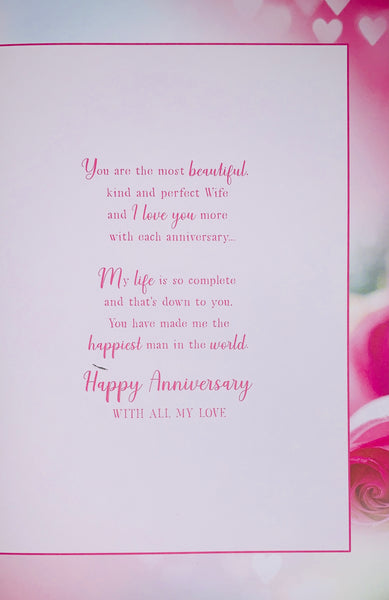 You are the most beautiful,
kind and perfect Wife
and I love you more
with each anniversary...
My life is so complete
and that's down to you.
You have made me the
happiest man in the world.
Happy Anniversary
WITH ALL MY LOVE